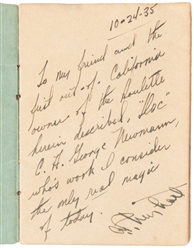 10-24-35
To my friend and the
first out-of-California
owner of the Roulette
herein described, "Doc"
C. A. George Newmann,
who's work I consider
the only real magic
of today.